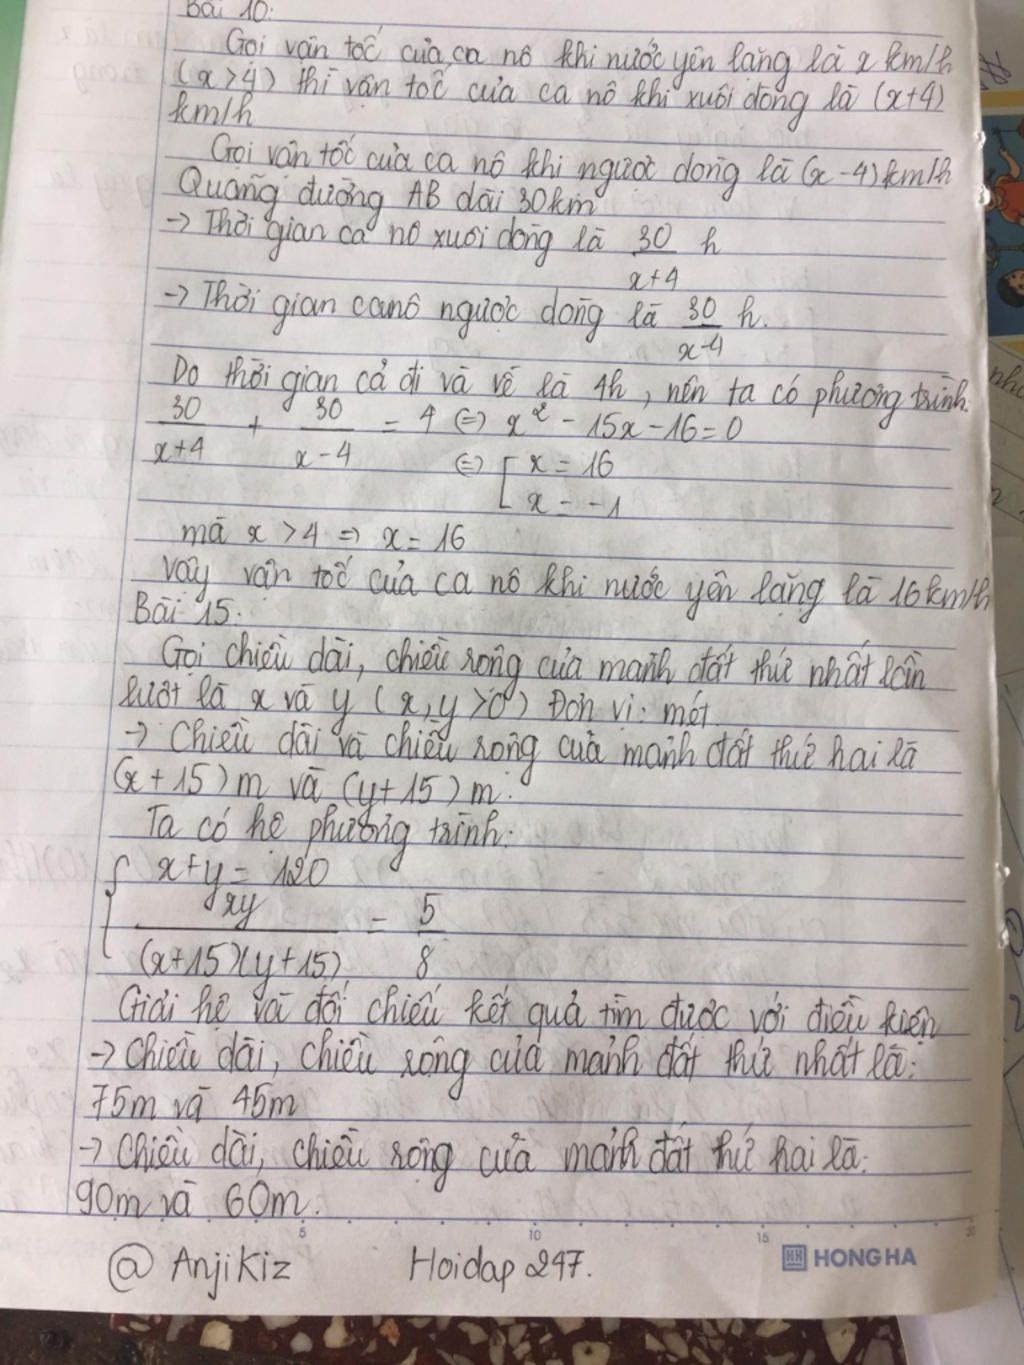 Bài 10:
Gọi vận tốc của ca nô khi nước yên lặng là x km/h
(x>4) thì vận tốc của ca nô khi xuôi dòng là (x+4)
km/h
Gọi vận tốc của ca nô khi ngược dòng là (x-4) km/h
Quãng đường AB dài 30km
→ Thời gian ca nô xuôi dòng là 30/(x+4) h
→ Thời gian canô ngược dòng là 30/(x-4) h.
Do thời gian cả đi và về là 4h, nên ta có phương trình:
30/(x+4) + 30/(x-4) = 4 ⇔ x² - 15x - 16 = 0
⇔ [ x = 16
x = -1
mà x > 4 ⇒ x = 16
Vậy vận tốc của ca nô khi nước yên lặng là 16km/h
Bài 15:
Gọi chiều dài, chiều rộng của mảnh đất thứ nhất lần
lượt là x và y (x,y >0) Đơn vị: mét.
→ Chiều dài và chiều rộng của mảnh đất thứ hai là
(x+15)m và (y+15)m.
Ta có hệ phương trình:
{ x+y = 120
xy/((x+15)(y+15)) = 5/8
Giải hệ và đối chiếu kết quả tìm được với điều kiện
→ Chiều dài, chiều rộng của mảnh đất thứ nhất là:
75m và 45m
→ Chiều dài, chiều rộng của mảnh đất thứ hai là:
90m và 60m.
5 10 15 20
@ AnjiKiz Hoidap 247.
HH HONG HA